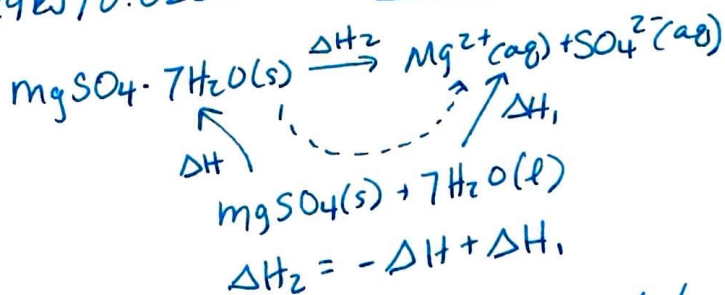 ΔH₂
MgSO₄·7H₂O(s) → Mg²⁺(aq) + SO₄²⁻(aq)
ΔH
ΔH₁
MgSO₄(s) + 7H₂O(l)
ΔH₂ = -ΔH + ΔH₁